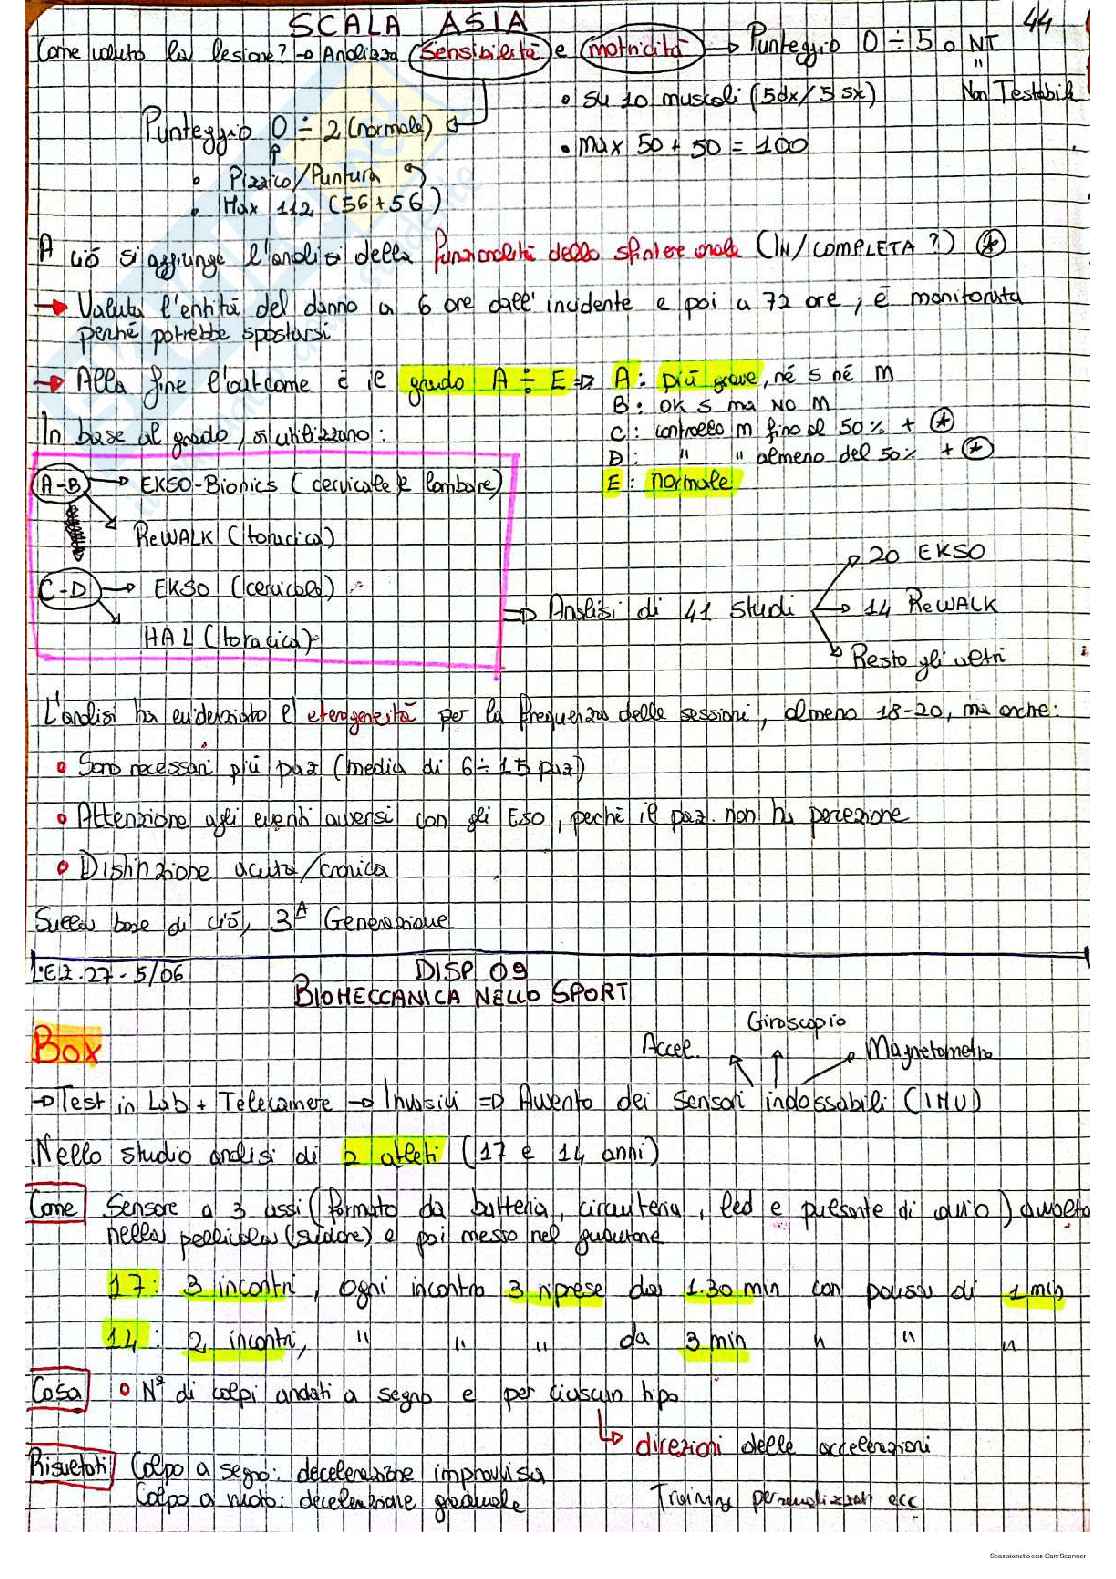 44
SCALA ASIA
Come valuto la lesione? → Analizzo (sensibilità) e (motricità) → Punteggio 0 ÷ 5 o NT
"
Non Testabile
• su 10 muscoli (5dx/5sx)
Punteggio 0 ÷ 2 (normale)
• max 50 + 50 = 100
• Pizzico/Puntura
• Max 112 (56+56)
A ciò si aggiunge l'analisi della funzionalità dello sfintere anale (IN/COMPLETA?) (*)
→ Valuta l'entità del danno a 6 ore dall'incidente e poi a 72 ore, è monitorata
perché potrebbe spostarsi
→ Alla fine l'outcome è il grado A ÷ E => A: più grave, né s né m
B: ok s ma NO M
In base al grado, si utilizzano:
C: controllo m fino al 50% + (*)
D: " " almeno del 50% + (*)
E: normale
A-B → EKSO-Bionics (cervicale e lombare)
ReWALK (toracica)
C-D → EKSO (cervicale)
HAL (toracica)
=> Analisi di 41 studi
→ 20 EKSO
→ 14 ReWALK
→ Resto gli altri
L'analisi ha evidenziato l'eterogeneità per la frequenza delle sessioni, almeno 18-20, ma anche:
• Sono necessari più paz (media di 6 ÷ 15 paz)
• Attenzione agli eventi avversi con gli Eso, perché il paz. non ha percezione
• Distinzione acuta/cronica
Sulla base di ciò, 3ᴬ Generazione
LEZ. 27 - 5/06
DISP. 09
BIOMECCANICA NELLO SPORT
Box
Giroscopio
Accel.
Magnetometro
→ Test in Lab + Telecamere → Invasivi => Avvento dei sensori indossabili (IMU)
Nello studio analisi di 2 atleti (17 e 14 anni)
Come Sensore a 3 assi (formato da batteria, circuiteria, led e pulsante di avvio) avvolto
nella pellicola (sudore) e poi messo nel guantone
17: 3 incontri, ogni incontro 3 riprese da 1.30 min con pausa di 1 min
14: 2 incontri, " " " da 3 min " " "
Cosa • N° di colpi andati a segno e per ciascun tipo
↳ direzioni delle accelerazioni
Risultati Colpo a segno: decelerazione improvvisa
Colpo a vuoto: decelerazione graduale
Training personalizzati ecc
Scansionato con CamScanner